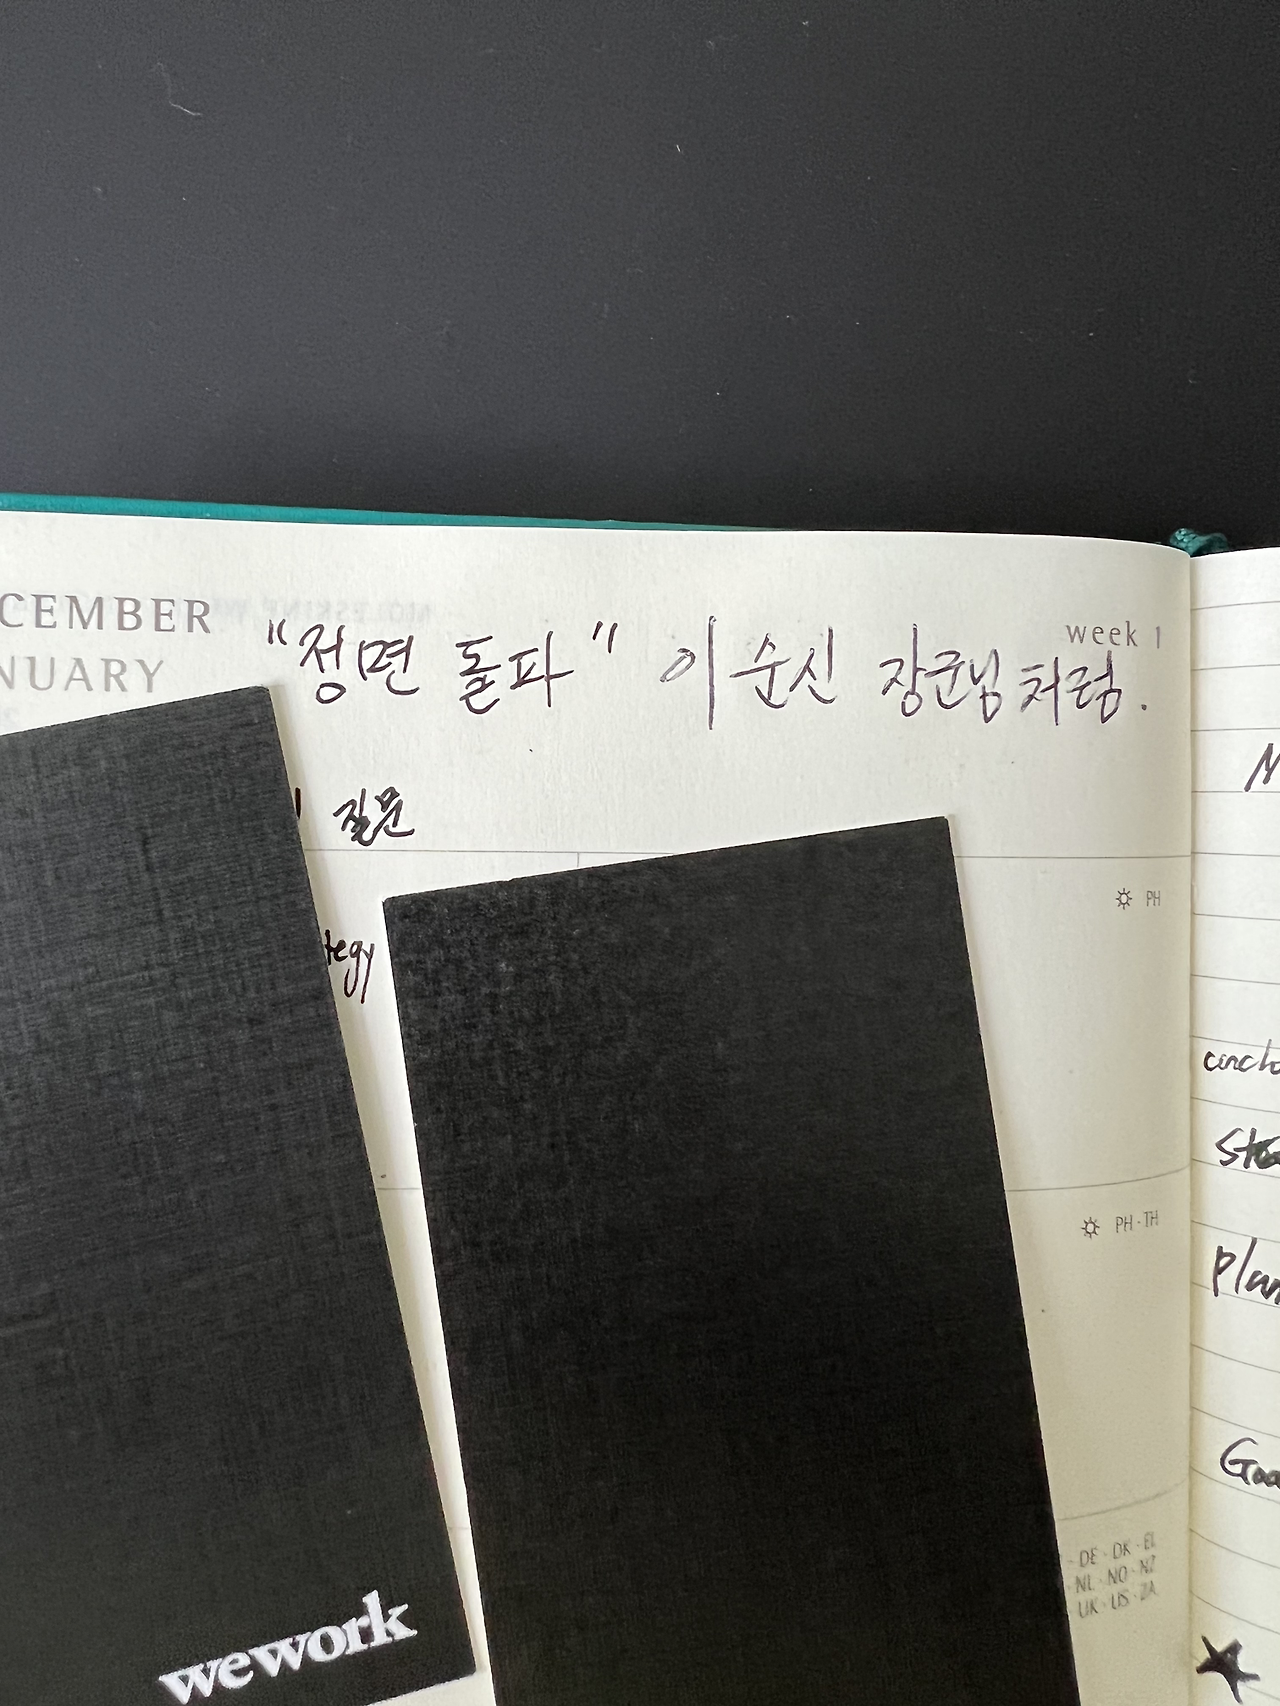 CEMBER
NUARY
week 1
"정면 돌파" 이순신 장군님처럼.
질문
PH
tegy
PH · TH
DE · DK · EL
NL · NO · NZ
UK · US · ZA
wework